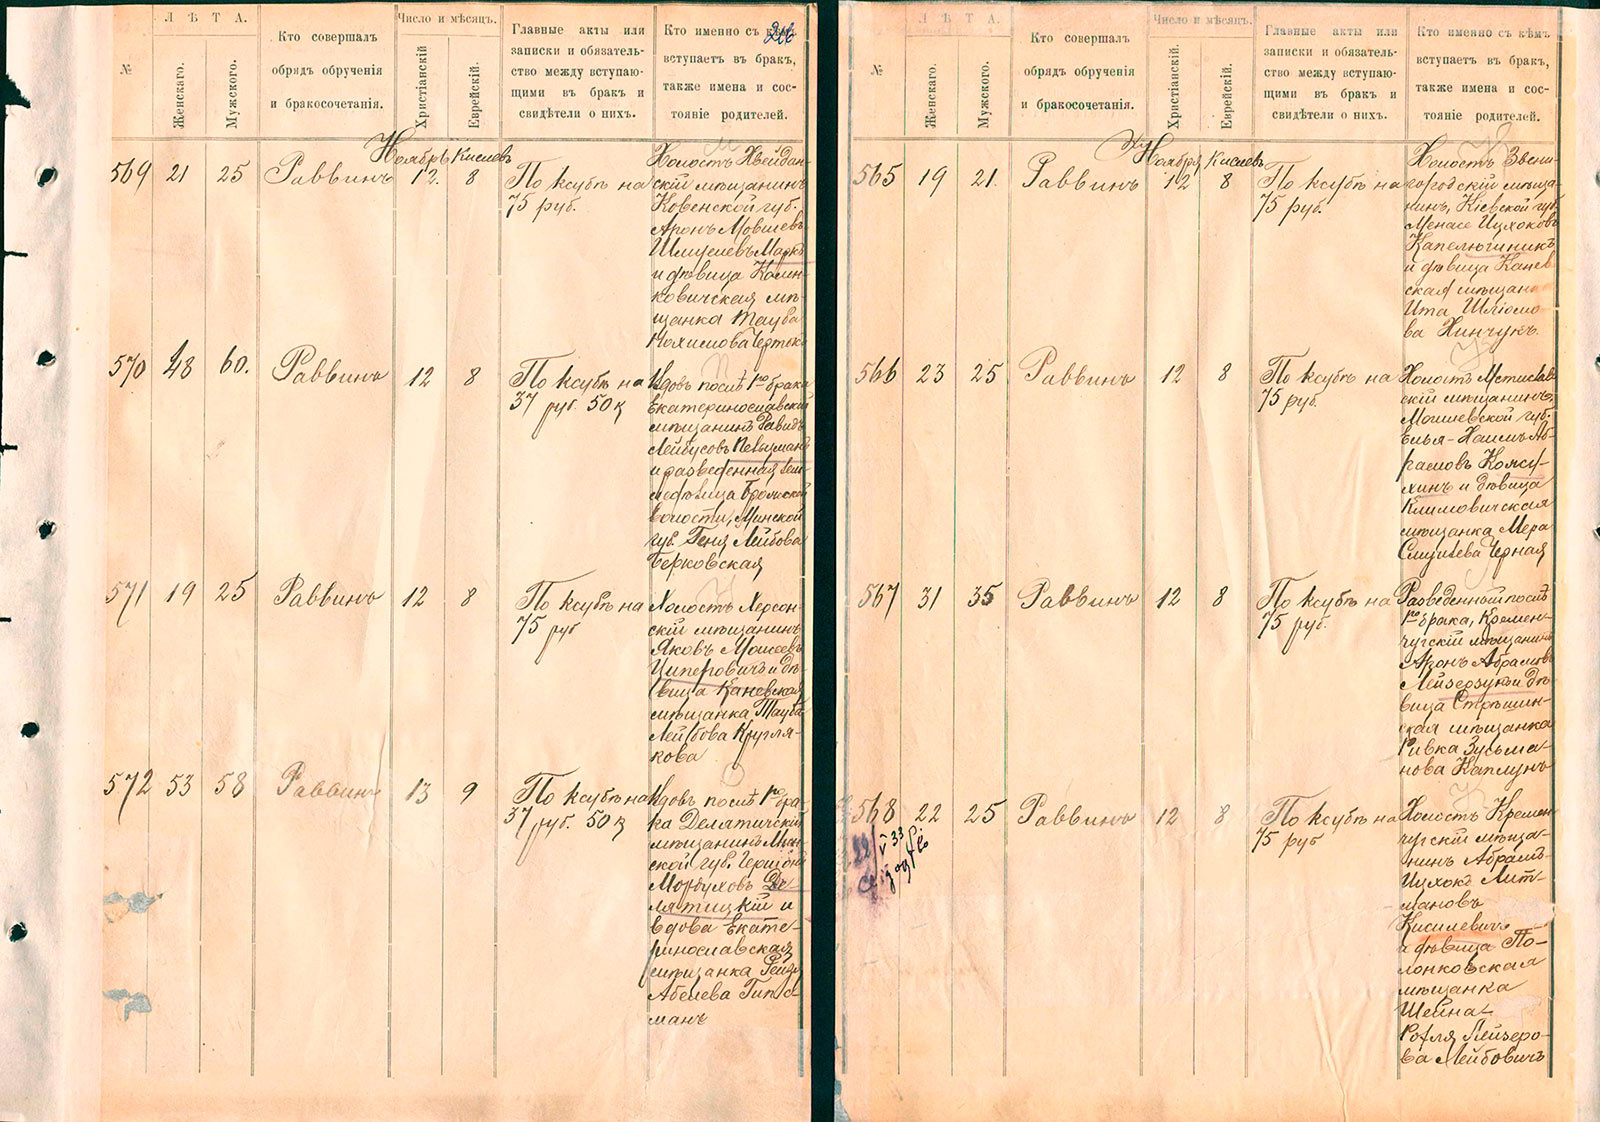 Л Ѣ Т А.
№
Женскаго.
Мужского.
Кто совершалъ
обрядъ обрученія
и бракосочетанія.
Число и мѣсяцъ.
Христіанскій
Еврейскій.
Главные акты или
записки и обязатель-
ство между вступаю-
щими въ бракъ и
свидѣтели о нихъ.
Кто именно съ кѣмъ
вступаетъ въ бракъ,
также имена и сос-
тояніе родителей.
Ноябрь Кислевъ
569 21 25 Раввинъ 12. 8
По ксубѣ на
75 руб.
Холостъ Квейдан-
скій мѣщанинъ
Ковенской губ.
Аронъ Мовшевъ
Шмуелевъ Маркъ
и дѣвица Калин-
ковичская мѣ-
щанка Тауба
Нохимова Чертокъ
570 48 60. Раввинъ 12 8
По ксубѣ на
37 руб. 50 к
Вдовъ послѣ 1го брака
Екатеринославскій
мѣщанинъ Давидъ
Лейбусовъ Певзманъ
и разведенная
Волости, Минской
губ. Геня Лейбова
Берковская
571 19 25 Раввинъ 12 8
По ксубѣ на
75 руб
Холостъ Херсон-
скій мѣщанинъ
Яковъ Моисеевъ
Циперовичъ и дѣ-
вица Каневская
мѣщанка Тауба
Лейбова Кругля-
кова
572 53 58 Раввинъ 13 9
По ксубѣ на
37 руб. 50 к
Вдовъ послѣ 1го бра-
ка Делятичскій
мѣщанинъ Мин-
ской губ. Гершонъ
Мордуховъ Де-
лятицкій и
вдова Екате-
ринославская
мѣщанка
Абелева Гипс-
манъ
Л Ѣ Т А.
№
Женскаго.
Мужского.
Кто совершалъ
обрядъ обрученія
и бракосочетанія.
Число и мѣсяцъ.
Христіанскій.
Еврейскій.
Главные акты или
записки и обязатель-
ство между вступаю-
щими въ бракъ и
свидѣтели о нихъ.
Кто именно съ кѣмъ
вступаетъ въ бракъ,
также имена и сос-
тояніе родителей.
Ноябрь Кислевъ
565 19 21. Раввинъ 12 8
По ксубѣ на
75 руб.
Холостъ Звени-
городскій мѣща-
нинъ, Кіевской губ.
Менасе Ицховъ
Капелюшникъ
и дѣвица Канев-
ская мѣщанка
Ита Шліомо-
ва Хинчукъ.
566 23 25 Раввинъ 12 8
По ксубѣ на
75 руб.
Холостъ Мстислав-
скій мѣщанинъ,
Могилевской губ.
Елья-Хаимъ Аб-
рамовъ Кожу-
хинъ и дѣвица
Климовичская
мѣщанка Мера
Черная
567 31 35 Раввинъ 12 8
По ксубѣ на
75 руб.
Разведенный послѣ
1го брака, Кремен-
чугскій мѣщанинъ
Аронъ Абрамовъ
Лейзерзукъ и дѣ-
вица Стрѣшин-
ская мѣщанка
Ривка Зусьма-
нова Каплунъ
568 22 25 Раввинъ 12 8
По ксубѣ на
75 руб
Холостъ Кремен-
чугскій мѣща-
нинъ Абрамъ-
Ицхокъ Лит-
мановъ
Кисилевичъ
и дѣвица По-
лонковская
мѣщанка
Шейна-
Рохля Лейзеро-
ва Лейбовичъ